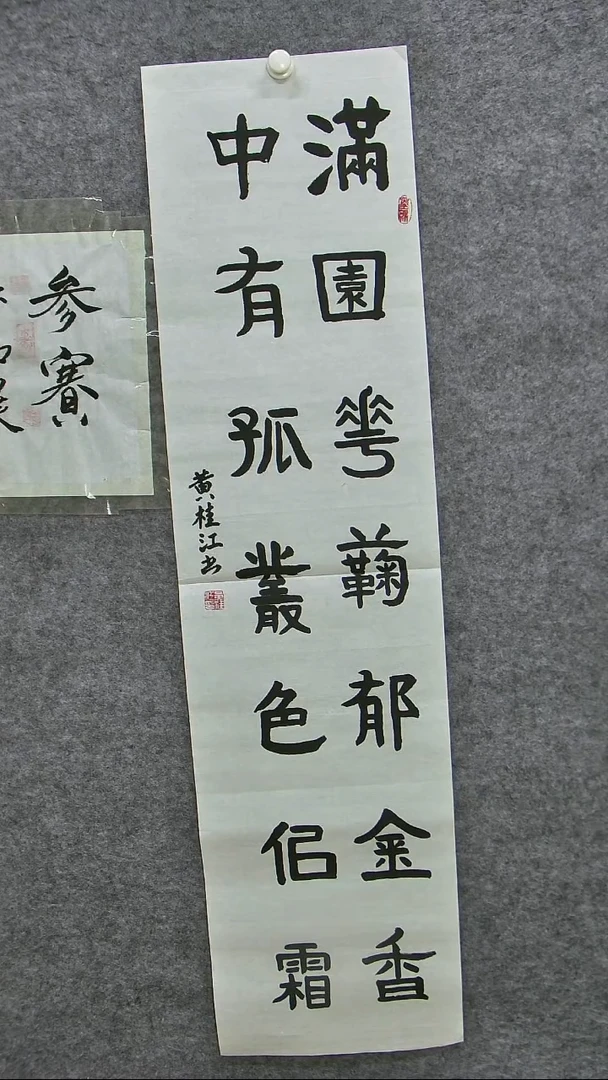 滿園花蘜郁金香
中有孤叢色佀霜
黄桂江书
参賽